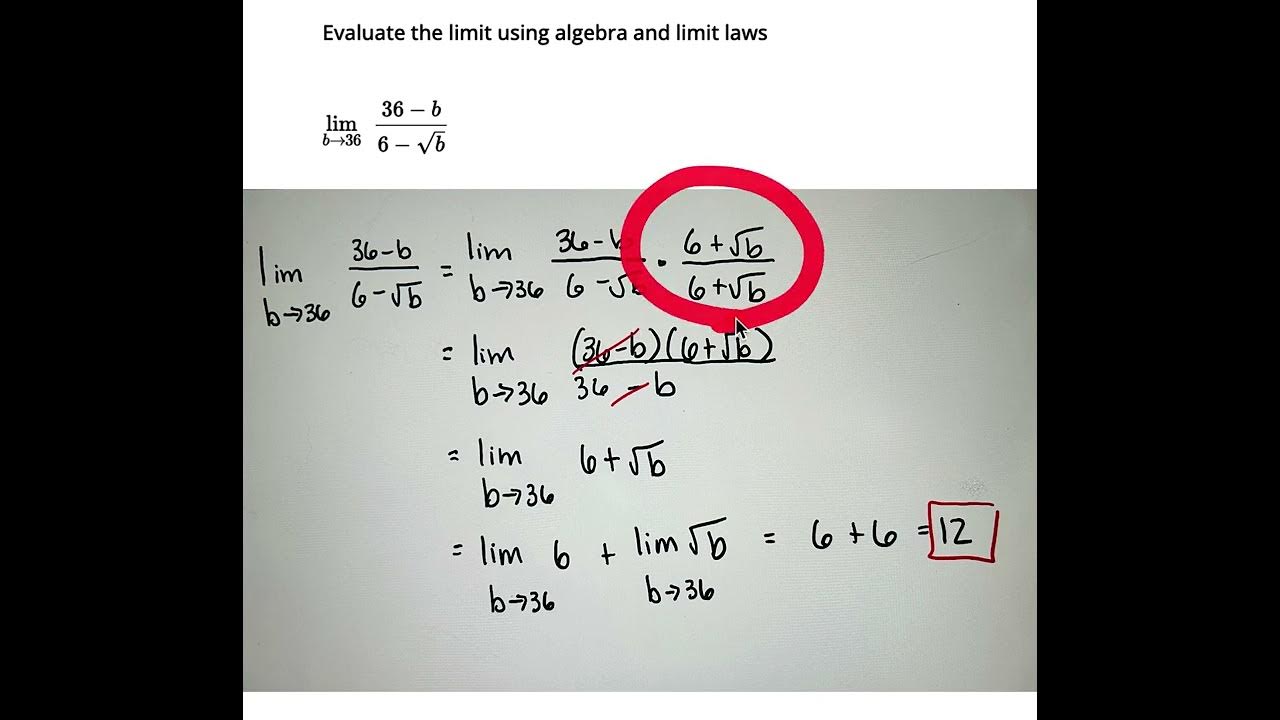 Evaluate the limit using algebra and limit laws
lim b→36 (36 − b)/(6 − √b)
lim b→36 (36-b)/(6-√b) = lim b→36 (36-b)/(6-√b) · (6+√b)/(6+√b)
= lim b→36 (36-b)(6+√b)/(36-b)
= lim b→36 6+√b
= lim b→36 6 + lim b→36 √b = 6+6 = 12